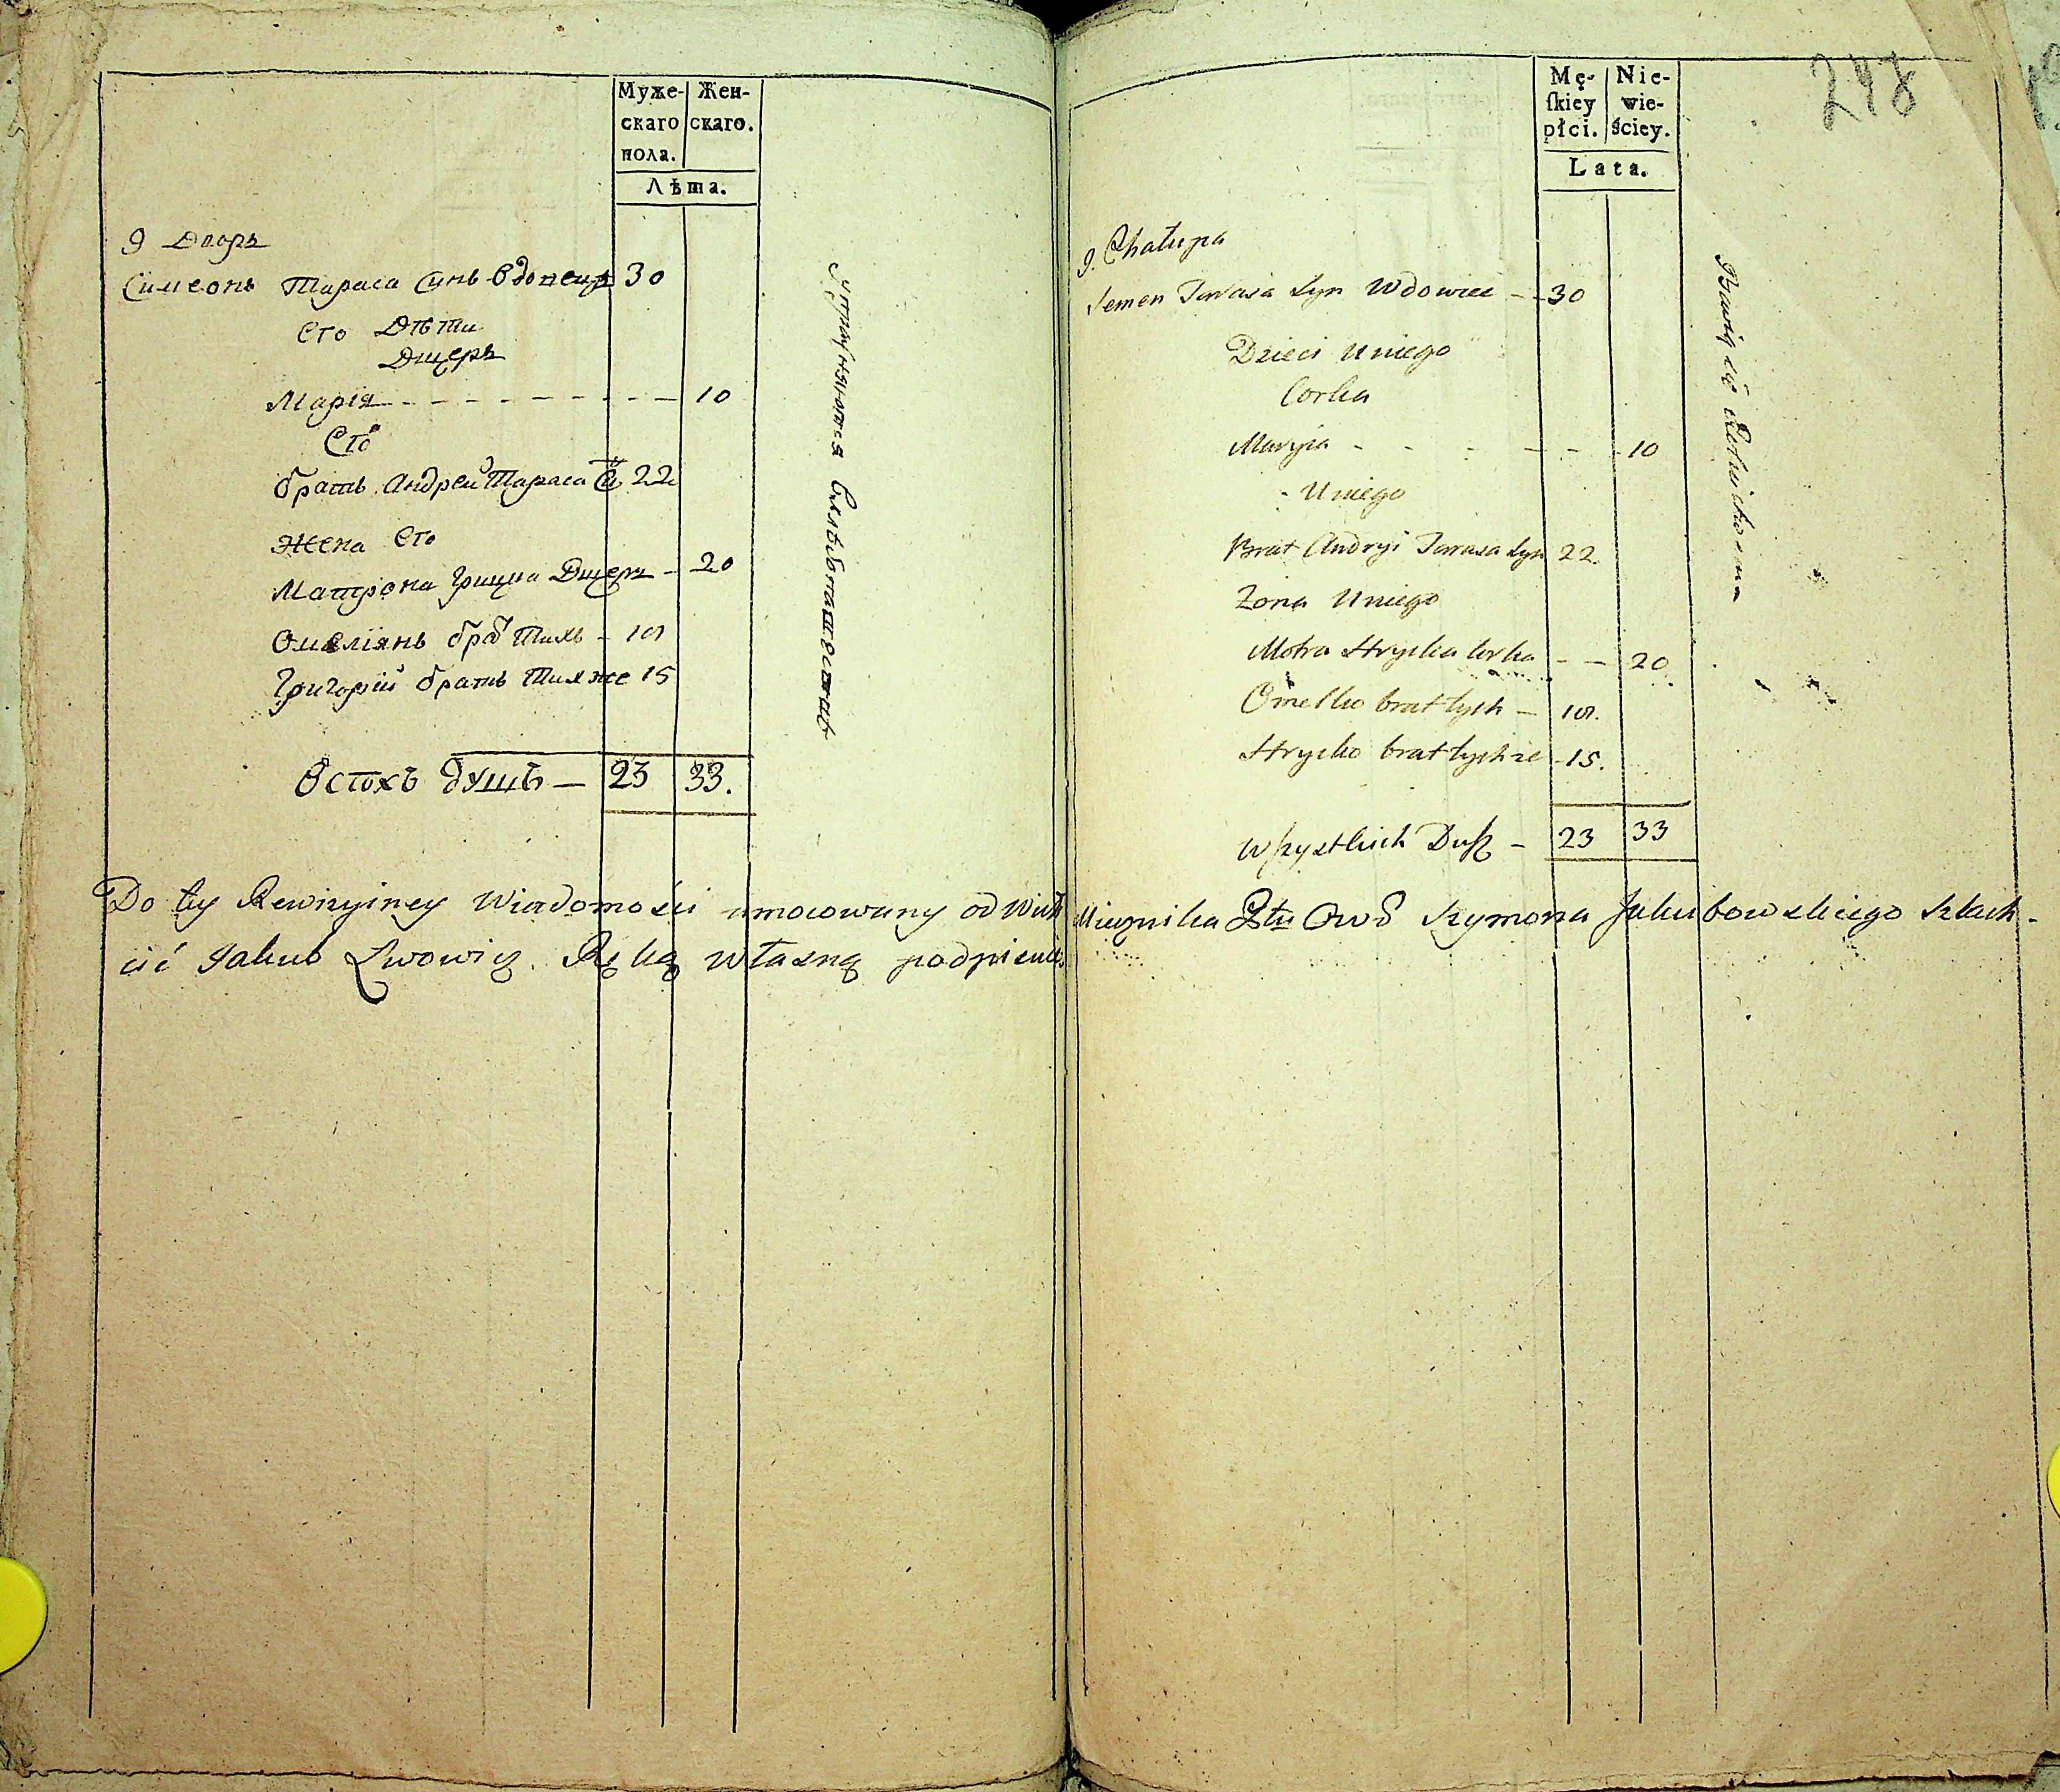 Муже-
скаго
пола.
Жен-
скаго.
Лѣта.
9 Дворъ
Сімеонъ Тараса Синъ вдовецъ 30
Его Дѣти
Дщерь
Марія - - - - - - - - 10
Его
братъ Андрей Тараса С 22
Жена Его
Матрона Грицка Дщерь - 20
Омеліянъ бра Тихъ -
Григорій братъ Тихже 15
душъ — 23 33.
Упражняются
248
Mę-
ſkiey
płci.
Nie-
wie-
ściey.
Lata.
9. Chałupa
Semen Tarasa Syn Wdowiec - - 30
Dzieci Uniego
Corka
Maryia - - - - - - 10
Uniego
Brat Andryi Tarasa Syn 22.
Żona Uniego
Motra Hrycka Corka - - 20
Omelko brat tych -
Hrycko brat tychże - 15.
Wſzystkich Duſz - 23 33
Bawią się
Do ty Rewizyiney Wiadomości umocowany od Miecznika Owo Szymona Jakubowskiego Szlach-
cić Jakub Lwowicz Ręką własną podpisuię